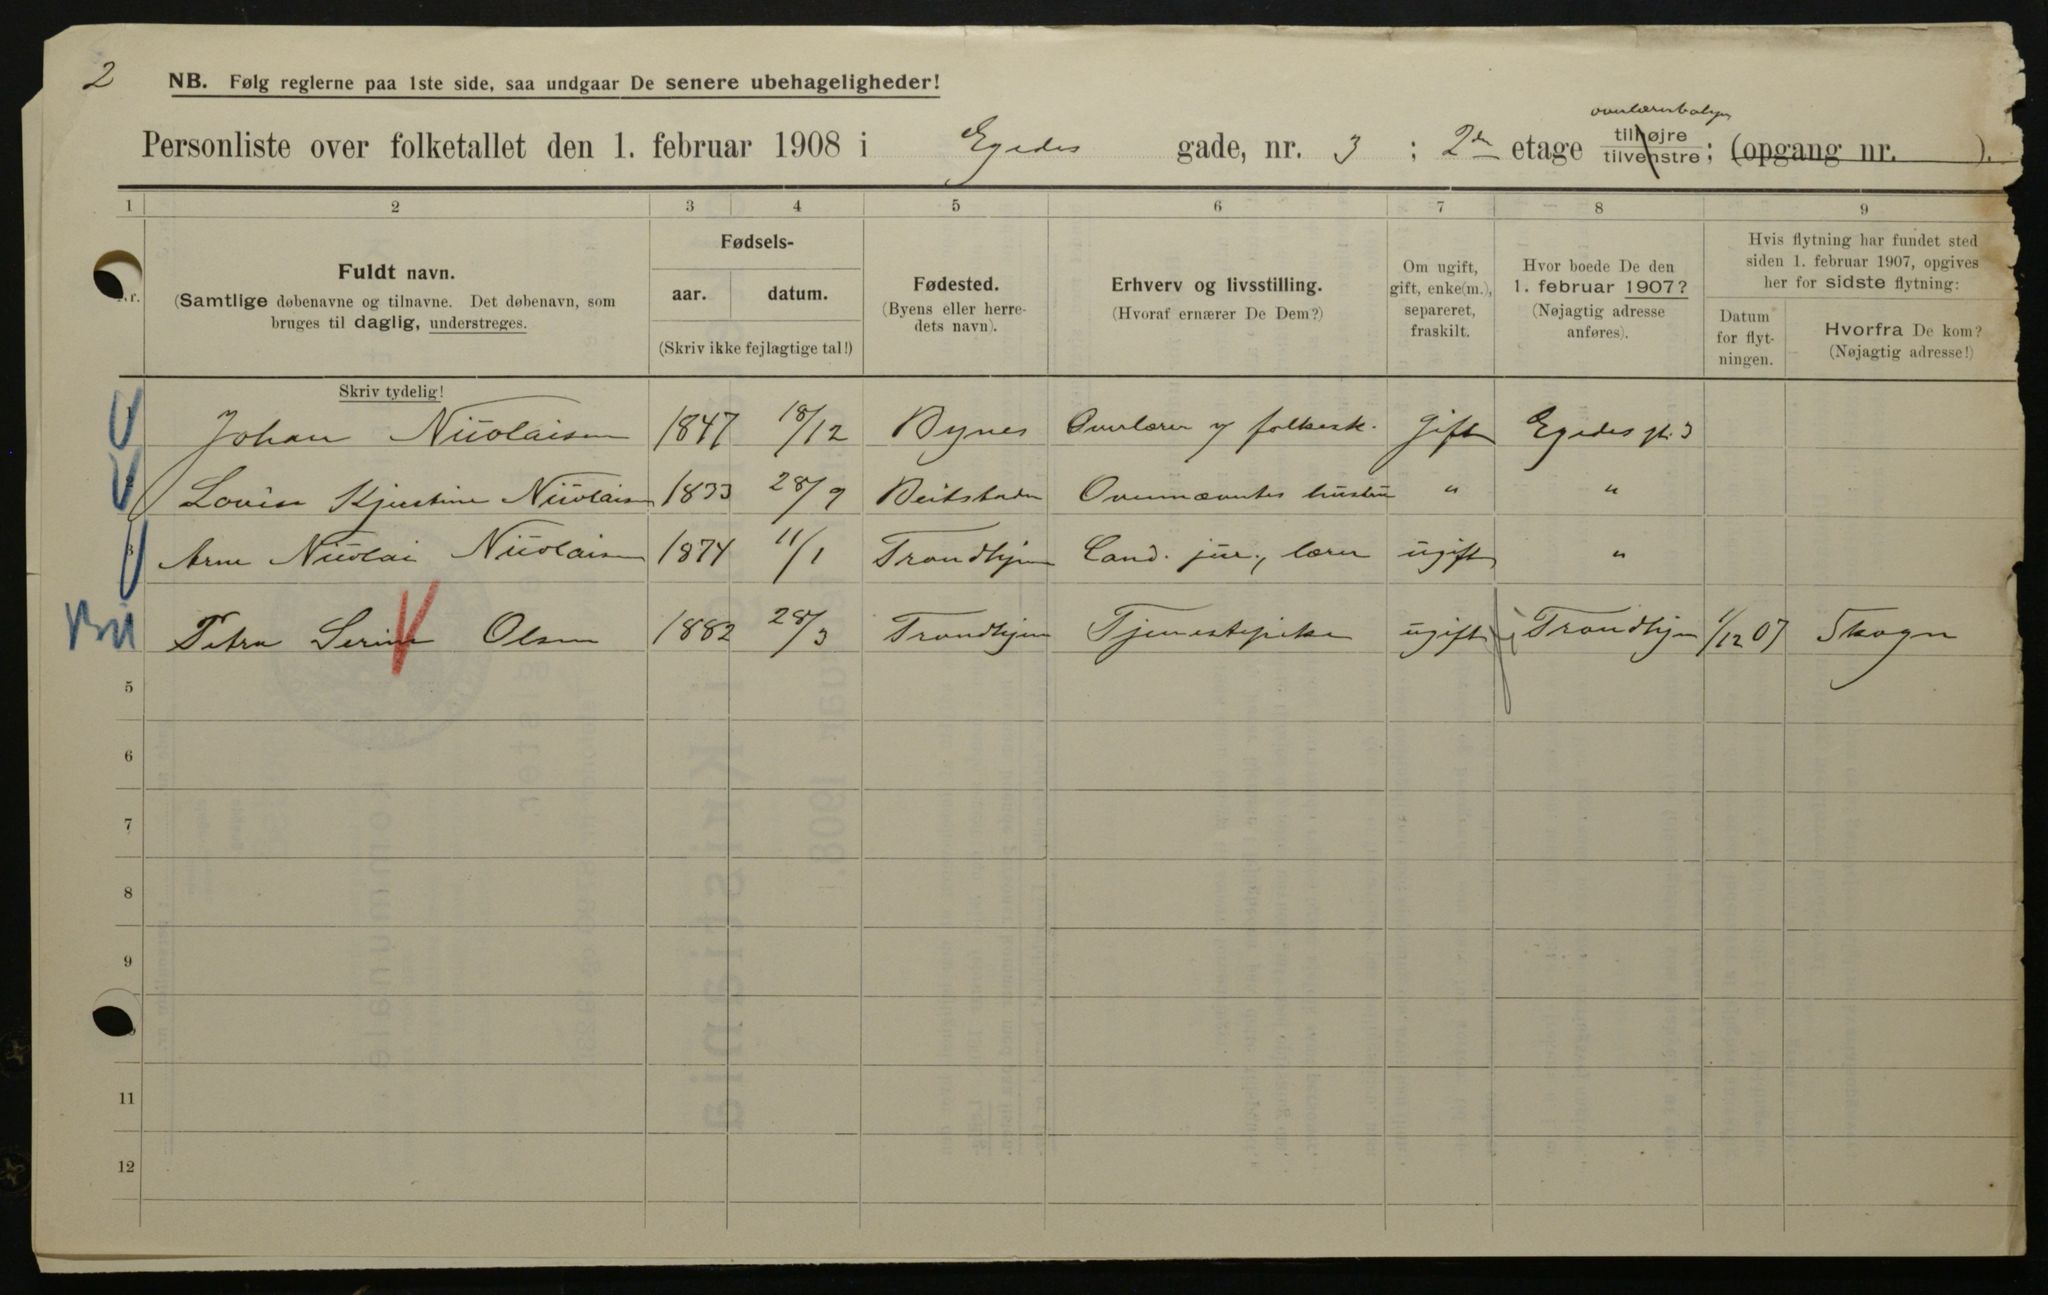 2
NB. Følg reglerne paa 1ste side, saa undgaar De senere ubehageligheder!
overlærerbolig
Personliste over folketallet den 1. februar 1908 i Egedes gade, nr. 3 ; 2den etage tilhøjre tilvenstre; (opgang nr. ).
1 2 3 4 5 6 7 8 9
Nr.
Fuldt navn.
(Samtlige døbenavne og tilnavne. Det døbenavn, som
bruges til daglig, understreges.
Skriv tydelig!
Fødsels-
aar. datum.
(Skriv ikke fejlagtige tal!)
Fødested.
(Byens eller herre-
dets navn).
Erhverv og livsstilling.
(Hvoraf ernærer De Dem?)
Om ugift,
gift, enke(m.),
separeret,
fraskilt.
Hvor boede De den
1. februar 1907?
(Nøjagtig adresse
anføres).
Hvis flytning har fundet sted
siden 1. februar 1907, opgives
her for sidste flytning:
Datum
for flyt-
ningen.
Hvorfra De kom?
(Nøjagtig adresse!)
1 Johan Nicolaisen 1847 18/12 Bynes Overlærer v folkesk. Gift Egedes gt. 3
2 Lovise Kjerstine Nicolaisen 1833 28/9 Beitstaden Ovennævntes hustru " "
3 Arne Nicolai Nicolaisen 1874 11/1 Trondhjem Cand. jur., lærer ugift "
Petra Serine Olsen 1882 28/3 Trondhjem Tjenestepike ugift Trondhjem 1/12 07 Skogn
5
6
7
8
9
11
12